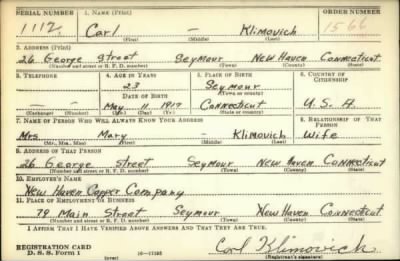 SERIAL NUMBER 1. NAME (Print) ORDER NUMBER
1112 Carl - Klimovich 1566
(First) (Middle) (Last)
2. ADDRESS (Print)
26 George Street Seymour New Haven Connecticut
(Number and street or R. F. D. number) (Town) (County) (State)
3. TELEPHONE 4. AGE IN YEARS 5. PLACE OF BIRTH 6. COUNTRY OF CITIZENSHIP
23 Seymour
(Town or county)
DATE OF BIRTH
- - May 11 1917 Connecticut U.S.A.
(Exchange) (Number) (Mo.) (Day) (Yr.) (State or country)
7. NAME OF PERSON WHO WILL ALWAYS KNOW YOUR ADDRESS 8. RELATIONSHIP OF THAT PERSON
Mrs. Mary - Klimovich Wife
(Mr., Mrs., Miss) (First) (Middle) (Last)
9. ADDRESS OF THAT PERSON
26 George Street Seymour New Haven Connecticut
(Number and street or R. F. D. number) (Town) (County) (State)
10. EMPLOYER'S NAME
New Haven Copper Company
11. PLACE OF EMPLOYMENT OR BUSINESS
79 Main Street Seymour New Haven Connecticut
(Number and street or R. F. D. number) (Town) (County) (State)
I AFFIRM THAT I HAVE VERIFIED ABOVE ANSWERS AND THAT THEY ARE TRUE.
REGISTRATION CARD
D. S. S. Form 1 (over) Carl Klimovich
(Registrant's signature)